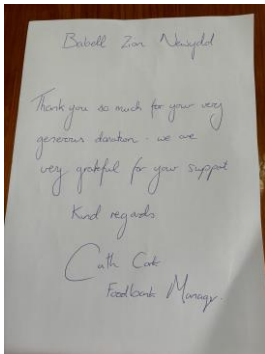 Babell Zion Newydd
Thank you so much for your very
generous donation - we are
very grateful for your support
Kind regards
Cath
Foodbank Manager.